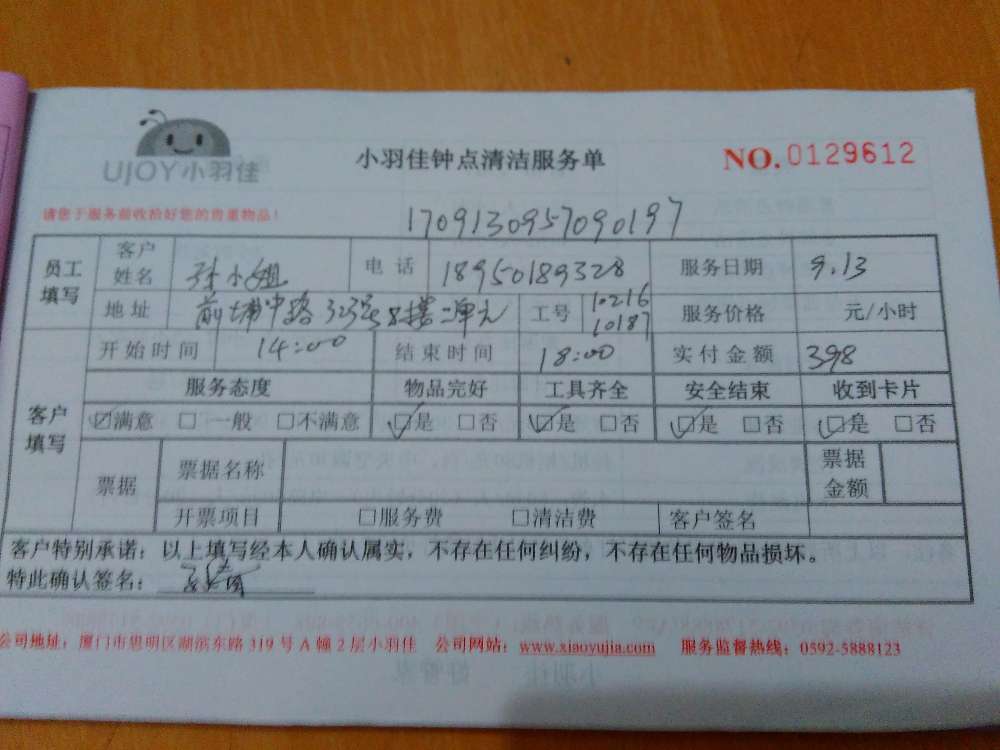 UJOY小羽佳
小羽佳钟点清洁服务单
NO.0129612
请您于服务前收拾好您的贵重物品！
170913095709 0197
员工填写 客户姓名 孙小姐 电话 18950189328 服务日期 9.13
地址 前埔中路323号8楼二单元 工号 10216 10187 服务价格 元/小时
开始时间 14:00 结束时间 18:00 实付金额 398
客户填写 服务态度 物品完好 工具齐全 安全结束 收到卡片
☑满意 □一般 □不满意 ☑是 □否 ☑是 □否 ☑是 □否 ☑是 □否
票据 票据名称 票据金额
开票项目 □服务费 □清洁费 客户签名
客户特别承诺：以上填写经本人确认属实，不存在任何纠纷，不存在任何物品损坏。
特此确认签名：
公司地址：厦门市思明区湖滨东路 319 号 A 幢 2 层小羽佳 公司网站：www.xiaoyujia.com 服务监督热线：0592-5888123